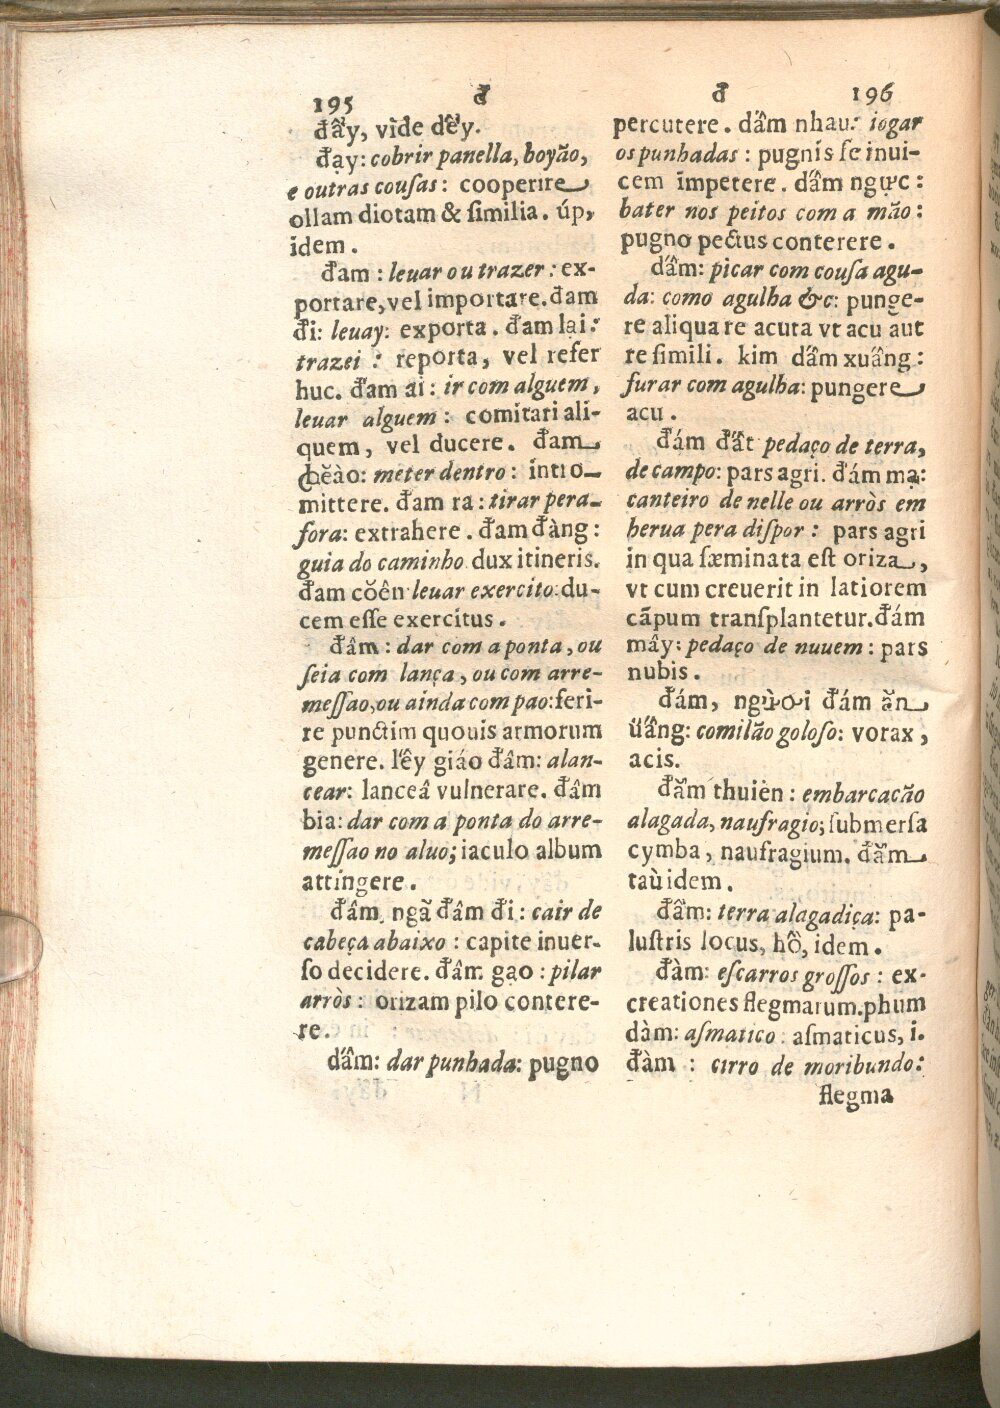 195 đ
đấy, vìde dếy.
đạy: cobrir panella, boyão,
e outras cousas: cooperire
ollam diotam & ſimilia. úp,
idem.
đam: leuar ou trazer: ex-
portare, vel importare. đam
đi: leuay: exporta. đam lại:
trazei: reporta, vel refer
huc. đam ai: ir com alguem,
leuar alguem: comitari ali-
quem, vel ducere. đam
ꞗĕào: meter dentro: intro-
mittere. đam ra: tirar pera-
fora: extrahere. đam đàng:
guia do caminho dux itineris.
đam cŏên leuar exercito: du-
cem eſſe exercitus.
đâm: dar com a ponta, ou
ſeia com lança, ou com arre-
meſſao, ou ainda com pao: feri-
re punctim quouis armorum
genere. lếy giáo đâm: alan-
cear: lanceâ vulnerare. đâm
bia: dar com a ponta do arre-
meſſao no aluo; iaculo album
attingere.
đâm, ngã đâm đi: cair de
cabeça abaixo: capite inuer-
ſo decidere. đâm gạo: pilar
arròs: orizam pilo contere-
re.
dấm: dar punhada: pugno
đ 196
percutere. dấm nhau: iogar
os punhadas: pugnis ſe inui-
cem impetere. dấm ngực:
bater nos peitos com a mão:
pugno pectus conterere.
dấm: picar com couſa agu-
da: como agulha &c: punge-
re aliqua re acuta vt acu aut
re ſimili. kim dấm xuâng:
furar com agulha: pungere
acu.
đám đất pedaço de terra,
de campo: pars agri. đám mạ:
canteiro de nelle ou arròs em
herua pera diſpor: pars agri
in qua ſæminata eſt oriza,
vt cum creuerit in latiorem
cãpum tranſplantetur. đám
mây: pedaço de nuuem: pars
nubis.
đám, ngừơi đám ăn
üấng: comilão goloſo: vorax,
acis.
đắm thuièn: embarcacão
alagada, naufragio; ſubmerſa
cymba, naufragium. đắm
taù idem.
đầm: terra alagadiça: pa-
luſtris locus, hồ, idem.
đàm: eſcarros groſſos: ex-
creationes flegmarum. phum
dàm: aſmatico: aſmaticus, i.
đàm: cirro de moribundo:
flegma